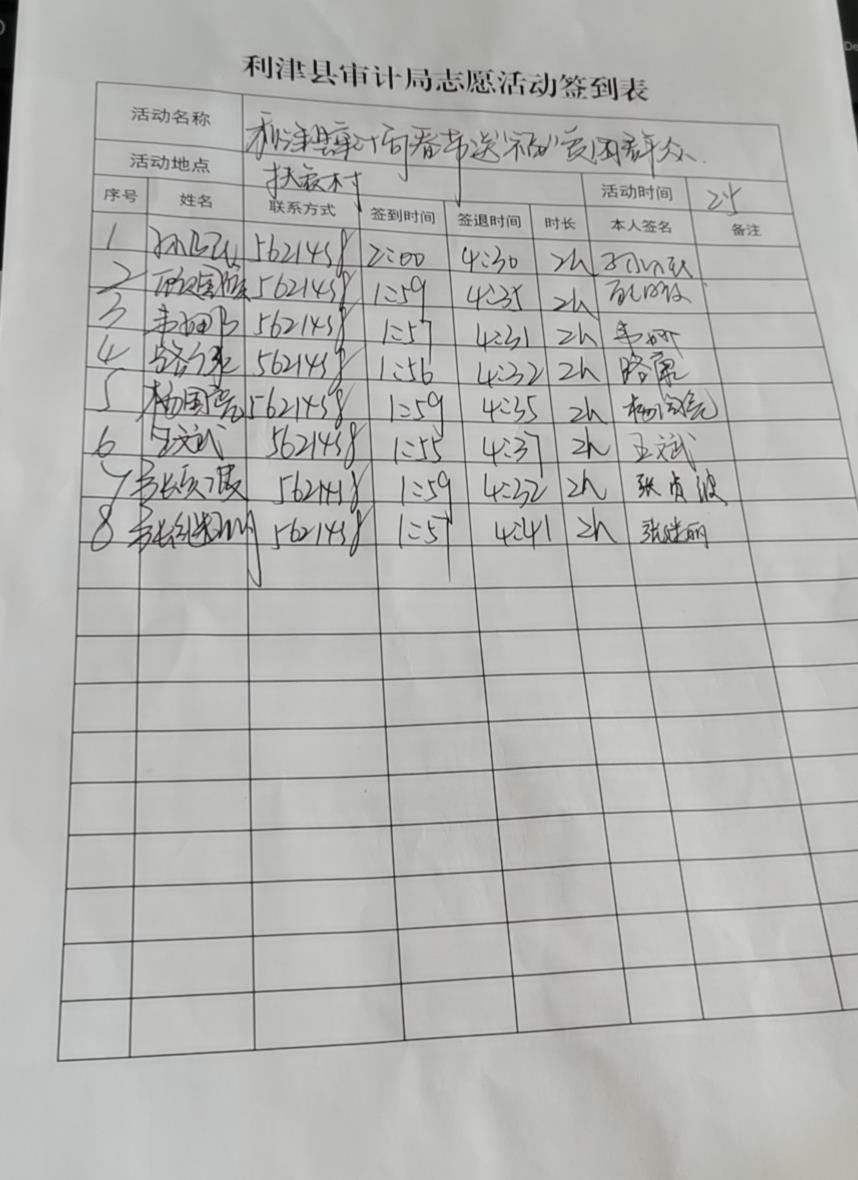 利津县审计局志愿活动签到表
活动名称 利津县审计局春节送"福"贫困群众.
活动地点 村 活动时间
序号 姓名 联系方式 签到时间 签退时间 时长 本人签名 备注
1 5621458 2:00 4:30 2h
2 5621458 1:59 4:35 2h
3 5621458 1:57 4:31 2h
4 5621458 1:56 4:32 2h 路康
5 杨国亮 5621458 1:59 4:35 2h 杨国亮
6 王文武 5621458 1:55 4:37 2h 王文武
7 5621458 1:59 4:32 2h 张贞波
8 张继丽 5621458 1:57 4:41 2h 张继丽